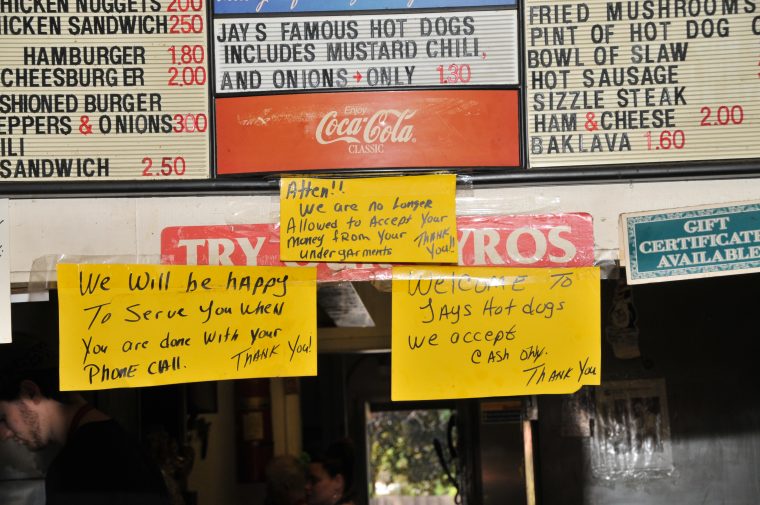 CHICKEN NUGGETS 200
CHICKEN SANDWICH 250
HAMBURGER 1.80
CHEESBURGER 2.00
BURGER
PEPPERS & ONIONS 300
SANDWICH 2.50
JAY'S FAMOUS HOT DOGS
INCLUDES MUSTARD CHILI,
AND ONIONS→ONLY 1.30
Enjoy
Coca-Cola
CLASSIC
FRIED MUSHROOMS
PINT OF HOT DOG
BOWL OF SLAW
HOT SAUSAGE
SIZZLE STEAK
HAM & CHEESE 2.00
BAKLAVA 1.60
Atten!!
We are no Longer
Allowed to Accept Your
money from Your
undergarments
THANK
You!!
TRY GYROS
GIFT
CERTIFICATE
AVAILABLE
We Will be hAppy
To Serve You When
You are done with Your
Phone cAll.
THANK You!
Welcome To
JAys Hot dogs
We accept
CAsh only.
THANK You